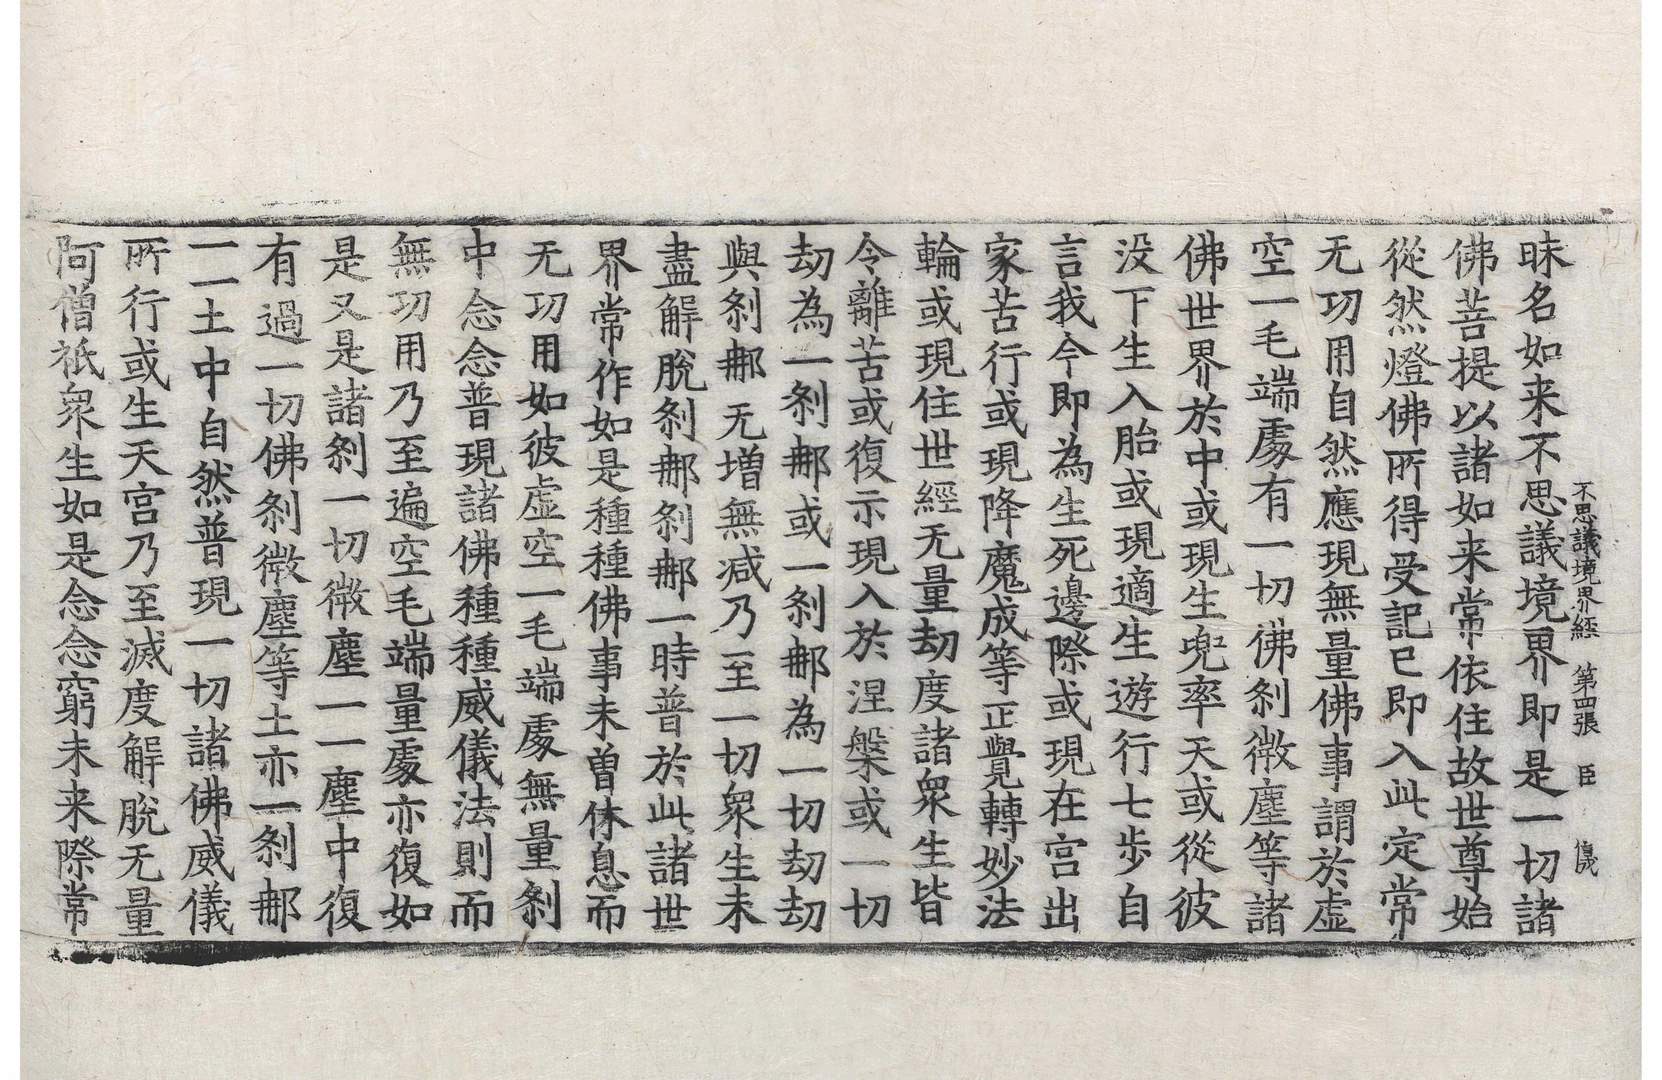 不思議境界經 第四張 臣
昧名如来不思議境界即是一切諸
佛菩提以諸如来常依住故世尊始
從然燈佛所得受記已即入此定常
无功用自然應現無量佛事謂於虚
空一毛端處有一切佛刹微塵等諸
佛世界於中或現生兜率天或從彼
没下生入胎或現適生遊行七步自
言我今即為生死邊際或現在宫出
家苦行或現降魔成等正覺轉妙法
輪或現住世經无量劫度諸衆生皆
令離苦或復示現入於涅槃或一切
劫為一刹那或一刹那為一切劫劫
與刹那无増無減乃至一切衆生未
盡解脫刹那刹那一時普於此諸世
界常作如是種種佛事未曽休息而
无功用如彼虚空一毛端處無量刹
中念念普現諸佛種種威儀法則而
無功用乃至遍空毛端量處亦復如
是又是諸刹一切微塵一一塵中復
有過一切佛刹微塵等土亦一刹那
一一土中自然普現一切諸佛威儀
所行或生天宫乃至滅度解脫无量
阿僧祇衆生如是念念窮未来際常